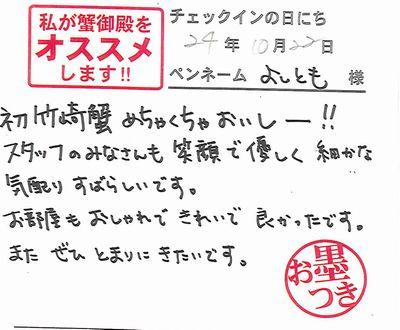 私が蟹御殿を
オススメ
します!!
チェックインの日にち
24年10月22日
ペンネーム よしとも 様
初竹崎蟹 めちゃくちゃおいしー!!
スタッフのみなさんも 笑顔で優しく 細かな
気配り すばらしいです。
お部屋も おしゃれで きれいで 良かったです。
また ぜひ とまりに きたいです。
お墨
つき